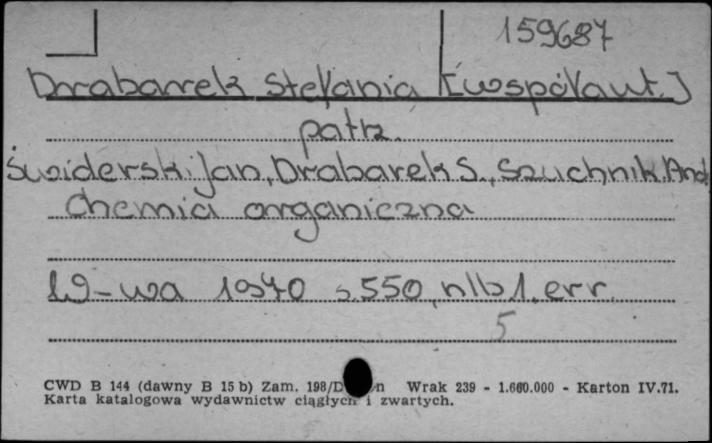 159687
Drabarek Stefania [współaut.]
patrz
Świderski Jan, Drabarek S., Szuchnik And
Chemia organiczna
W-wa 1970 s. 550, nlb 1. err.
5
CWD B 144 (dawny B 15 b) Zam. 198/D n Wrak 239 - 1.660.000 - Karton IV.71.
Karta katalogowa wydawnictw ciągłych i zwartych.